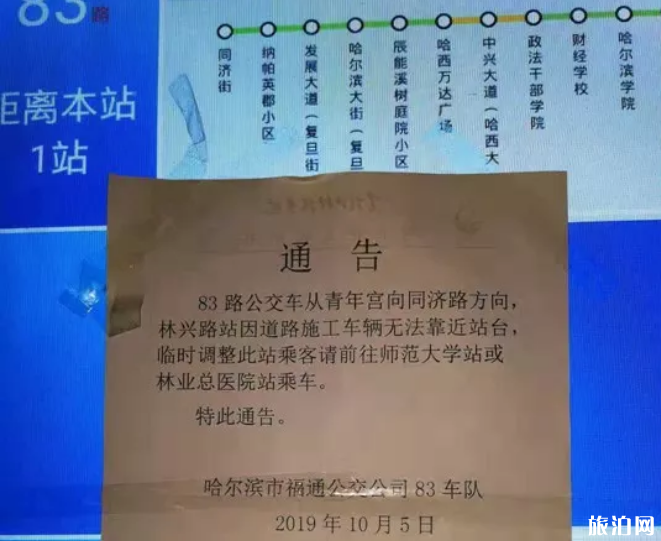 83路
距离本站
1站
同济街
纳帕英郡小区
发展大道（复旦街
哈尔滨大街（复旦
辰能溪树庭院小区
哈西万达广场
中兴大道（哈西大
政法干部学院
财经学校
哈尔滨学院
通 告
83 路公交车从青年宫向同济路方向，
林兴路站因道路施工车辆无法靠近站台，
临时调整此站乘客请前往师范大学站或
林业总医院站乘车。
特此通告。
哈尔滨市福通公交公司 83 车队
2019 年 10 月 5 日
旅泊网